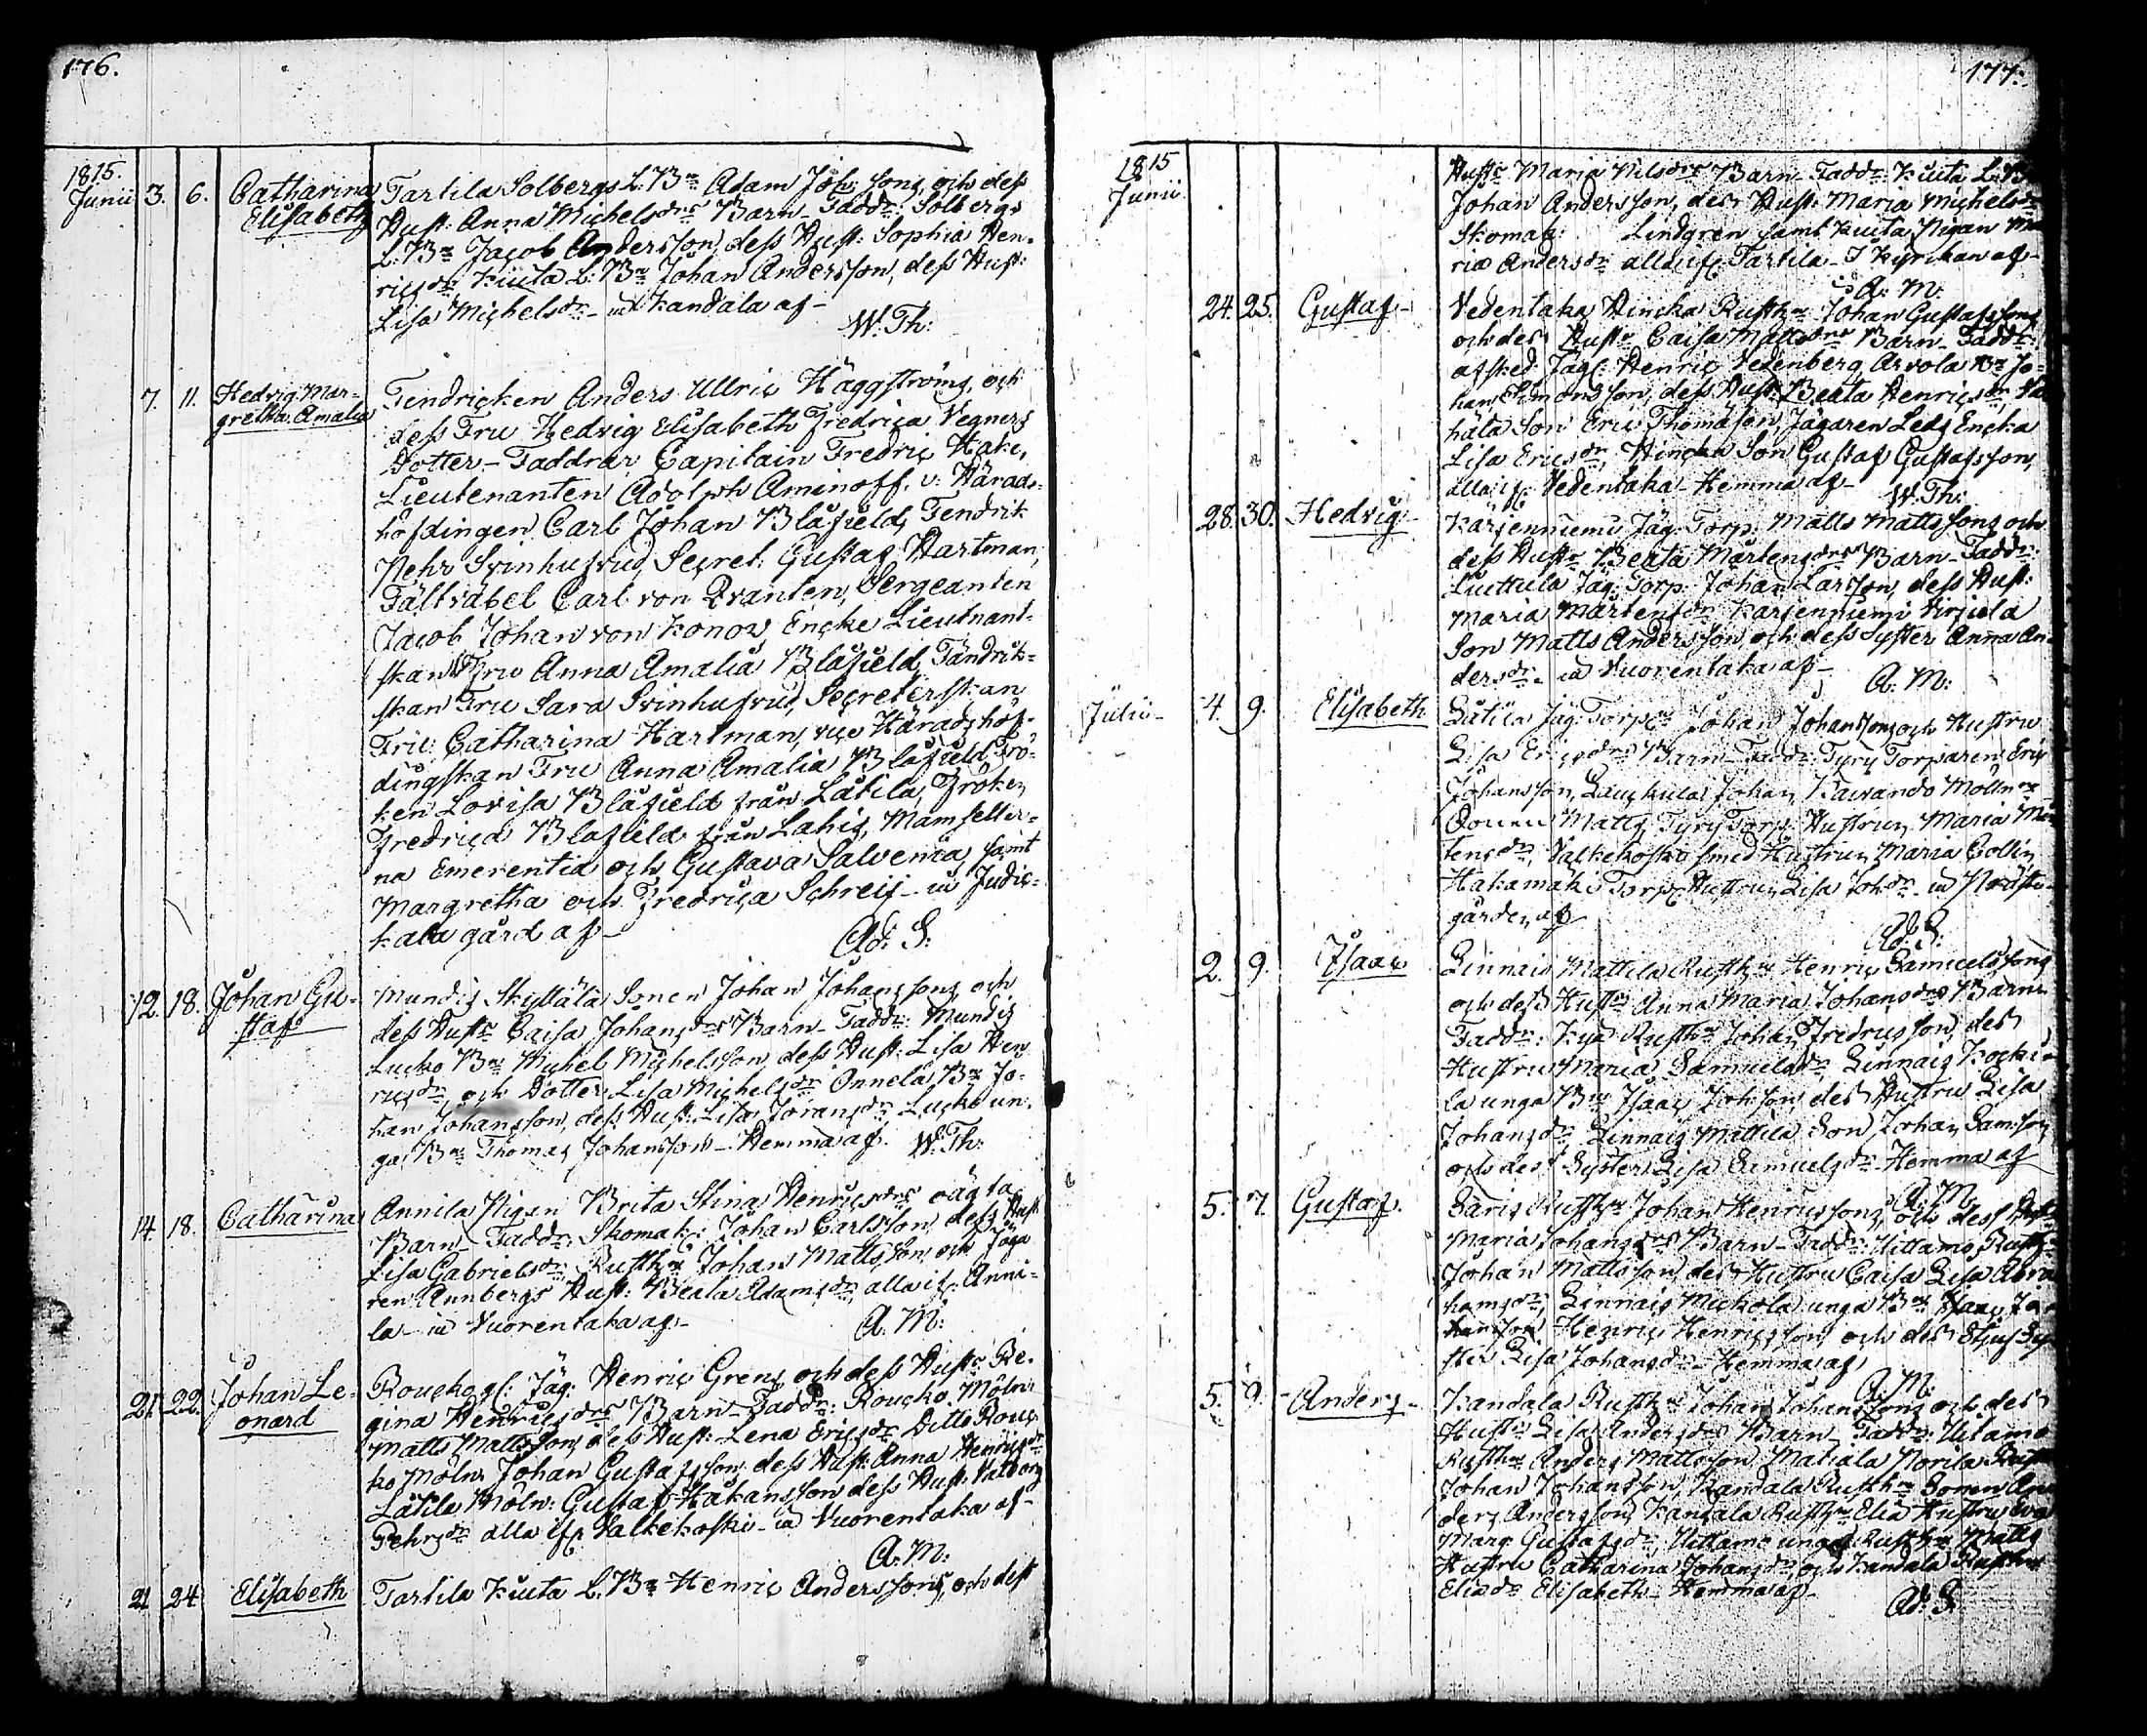 176.
1815.
Junii 3. 6. Catharina Elisabeth
Tartila Solbergs L: Bn Adam Joh: sons, och dess
Hust: Anna Michelsdrs Barn - Faddr: Solbergs
L: Bn Jacob Andersson, dess Hust: Sophia Hen-
ricsdr Kiuta L: Bn Johan Andersson, dess Hust:
Lisa Michelsdr - ut Kandala af -
W. Th:
7. 11. Hedvig Mar-
gretha Amalia
Fendricken Anders Ullric Häggströms, och
dess Fru Hedvig Elisabeth Fredrica Vegners
Dotter - Faddrar, Capitain Fredric Hake,
Lieutenanten Adolph Aminoff, v: Härads-
höfdingen Carl Johan Blåfield, Fendrik
Pehr Svinhufvud, Secret: Gustaf Hartman,
Fältväbel Carl von Qvanten, Sergeanten
Jacob Johan von Konow, Encke Lieutnant-
skan Fru Anna Amalia Blåfield, Fändrik-
skan Fru Sara Svinhufvud, Secreterskan
Fru Catharina Hartman, vice Häradshöf-
dingskan Fru Anna Amalia Blåfield, Frö-
ken Lovisa Blåfield från Låtila, Fröken
Fredrica Blåfield från Lahis, Mamseller-
na Emerentia och Gustava Salvenia, samt
Margretha och Fredrica Schreij - ut Judic-
kala gård af -
Ad: S:
12. 18. Johan Gu-
staf
Mundis Skyttälä Sonen Johan Johanssons, och
dess Hustr Caisa Johansdrs Barn - Faddr: Mundis
Lucko Bn Michel Michelsson, dess Hust: Lisa Hen
ricsdr, och Dotter Lisa Michelsdr, Onnela Bn Jo-
han Johansson, dess Hust: Lisa Jöransdr, Lucko un-
ga Bn Thomas Johansson - Hemma af. W. Th:
14. 18. Catharina
Annila Pigan Brita Stina Henricsdrs oägta
Barn - Faddr: Skomak: Johan Carlsson, dess Hust
Lisa Gabrielsdr, Rusth: Johan Mattsson, och Jäga
ren Annbergs Hust: Beata Adamsdr, alla if: Anni-
la - ut Vuorentaka af -
A. M:
21. 22. Johan Le-
onard
Roucko gl: Jäg: Henric Grens och dess Hustr Re-
gina Henricsdrs Barn - Faddr: Roucko Mölnr
Matts Mattsson, dess Hust: Lena Ericsdr, Ditto Rouc
ko Möln: Johan Gustafsson, dess Hust: Anna Henricsdr
Låtila Möln: Gustaf Håkansson, dess Hust: Valborg
Pehrsdr alla if: Valkekoski - ut Vuorentaka af -
A. M:
21 24 Elisabeth
Tartila Kiuta L: Bn Henric Anderssons, och dess
177.
1815
Junii
Hustr Maria Nilsdrs Barn - Faddr: Kiuta L: Bn
Johan Andersson, dess Hust: Maria Michelsdr
Skomak: Lindgren samt Kiuta Pigan Ma
ria Andersdr alla if: Tartila - I Kyrckan af -
A. M:
24. 25. Gustaf -
Vedentaka Hincka Rusthr Johan Gustafssons
och dess Hustr Caisa Mattsdrs Barn - Faddr:
afsked: Jäg: Henric Vedenberg, Arvola Bn Jo-
han Simonsson, dess Hust: Beata Henricsdr,
Son Eric Thomasson, Jägaren Leds Encka
Lisa Ericsdr, Hincka Son Gustaf Gustafsson,
alla if: Vedentaka - Hemma af -
W. Th:
28. 30. Hedvig
Karjenniemi Jäg: Torp: Matts Mattssons och
dess Hustr Beata Mårtensdrs Barn - Faddr:
Luttula Jäg: Torp: Johan Larsson, dess Hust:
Maria Mårtensdr, Karjenniemi
Son Matts Andersson och dess Syster Anna An
dersdr - ut Vuorentaka af -
A. M:
Julii - 4. 9. Elisabeth
Låtila Jäg: Torprs Johan Johanssons och Hustru
Lisa Ericsdrs Barn - Faddr: Tyry Torparen Eric
Johansson, Johan
Matts, Tyry Torp: Hustrun Maria Mår
tensdr, Valkekoski smed Hustrun Maria Collin
Hakamäki Torp: Hustrun Lisa Johdr - ut Präste-
gården af
Ad: S:
2. 9. Isaac
Linnais Mattila Rusthr Henric Samuelssons
och dess Hustr Anna Maria Johansdrs Barn
Faddr: Rusthr Johan Fredricsson, dess
Hustru Maria Samuelsdr, Linnais Kocki-
la unga Bn Isaac Johsson, dess Hustru Lisa
Johansdr, Linnais Mattila Son Johan Samsson,
och dess Syster Lisa Samuelsdr - Hemma af
A. M:
5. 7. Gustaf.
Saris Rusthr Johan Henricssons, och dess Hustr
Maria Johansdrs Barn - Faddr: Uittamo Rusth
Johan Mattsson, dess Hustru Caisa Lisa Abra
hamsdr, Linnais Mickola unga Bn Isaac Jo-
hansson, Henric Henricsson, och dess Sy-
ster Lisa Johansdr - Hemma af
A. M:
5. 9. Anders -
Kandala Rusthr Johan Johanssons och dess
Hustr Lisa Andersdrs Barn - Faddr: Uitamo
Rusthr Anders Mattsson, Norila Rusth
Johan Johansson, Kandala Rusthr Sonen An
ders Andersson, Kandala Rusthr Elia Hustru Eva
Marg: Gustafsdr, Uittamo unga Rusthr Matts
Hustru Catharina Johansdr, och Kandala Rusthr
Eliedr Elisabeth - Hemma af -
Ad: S: